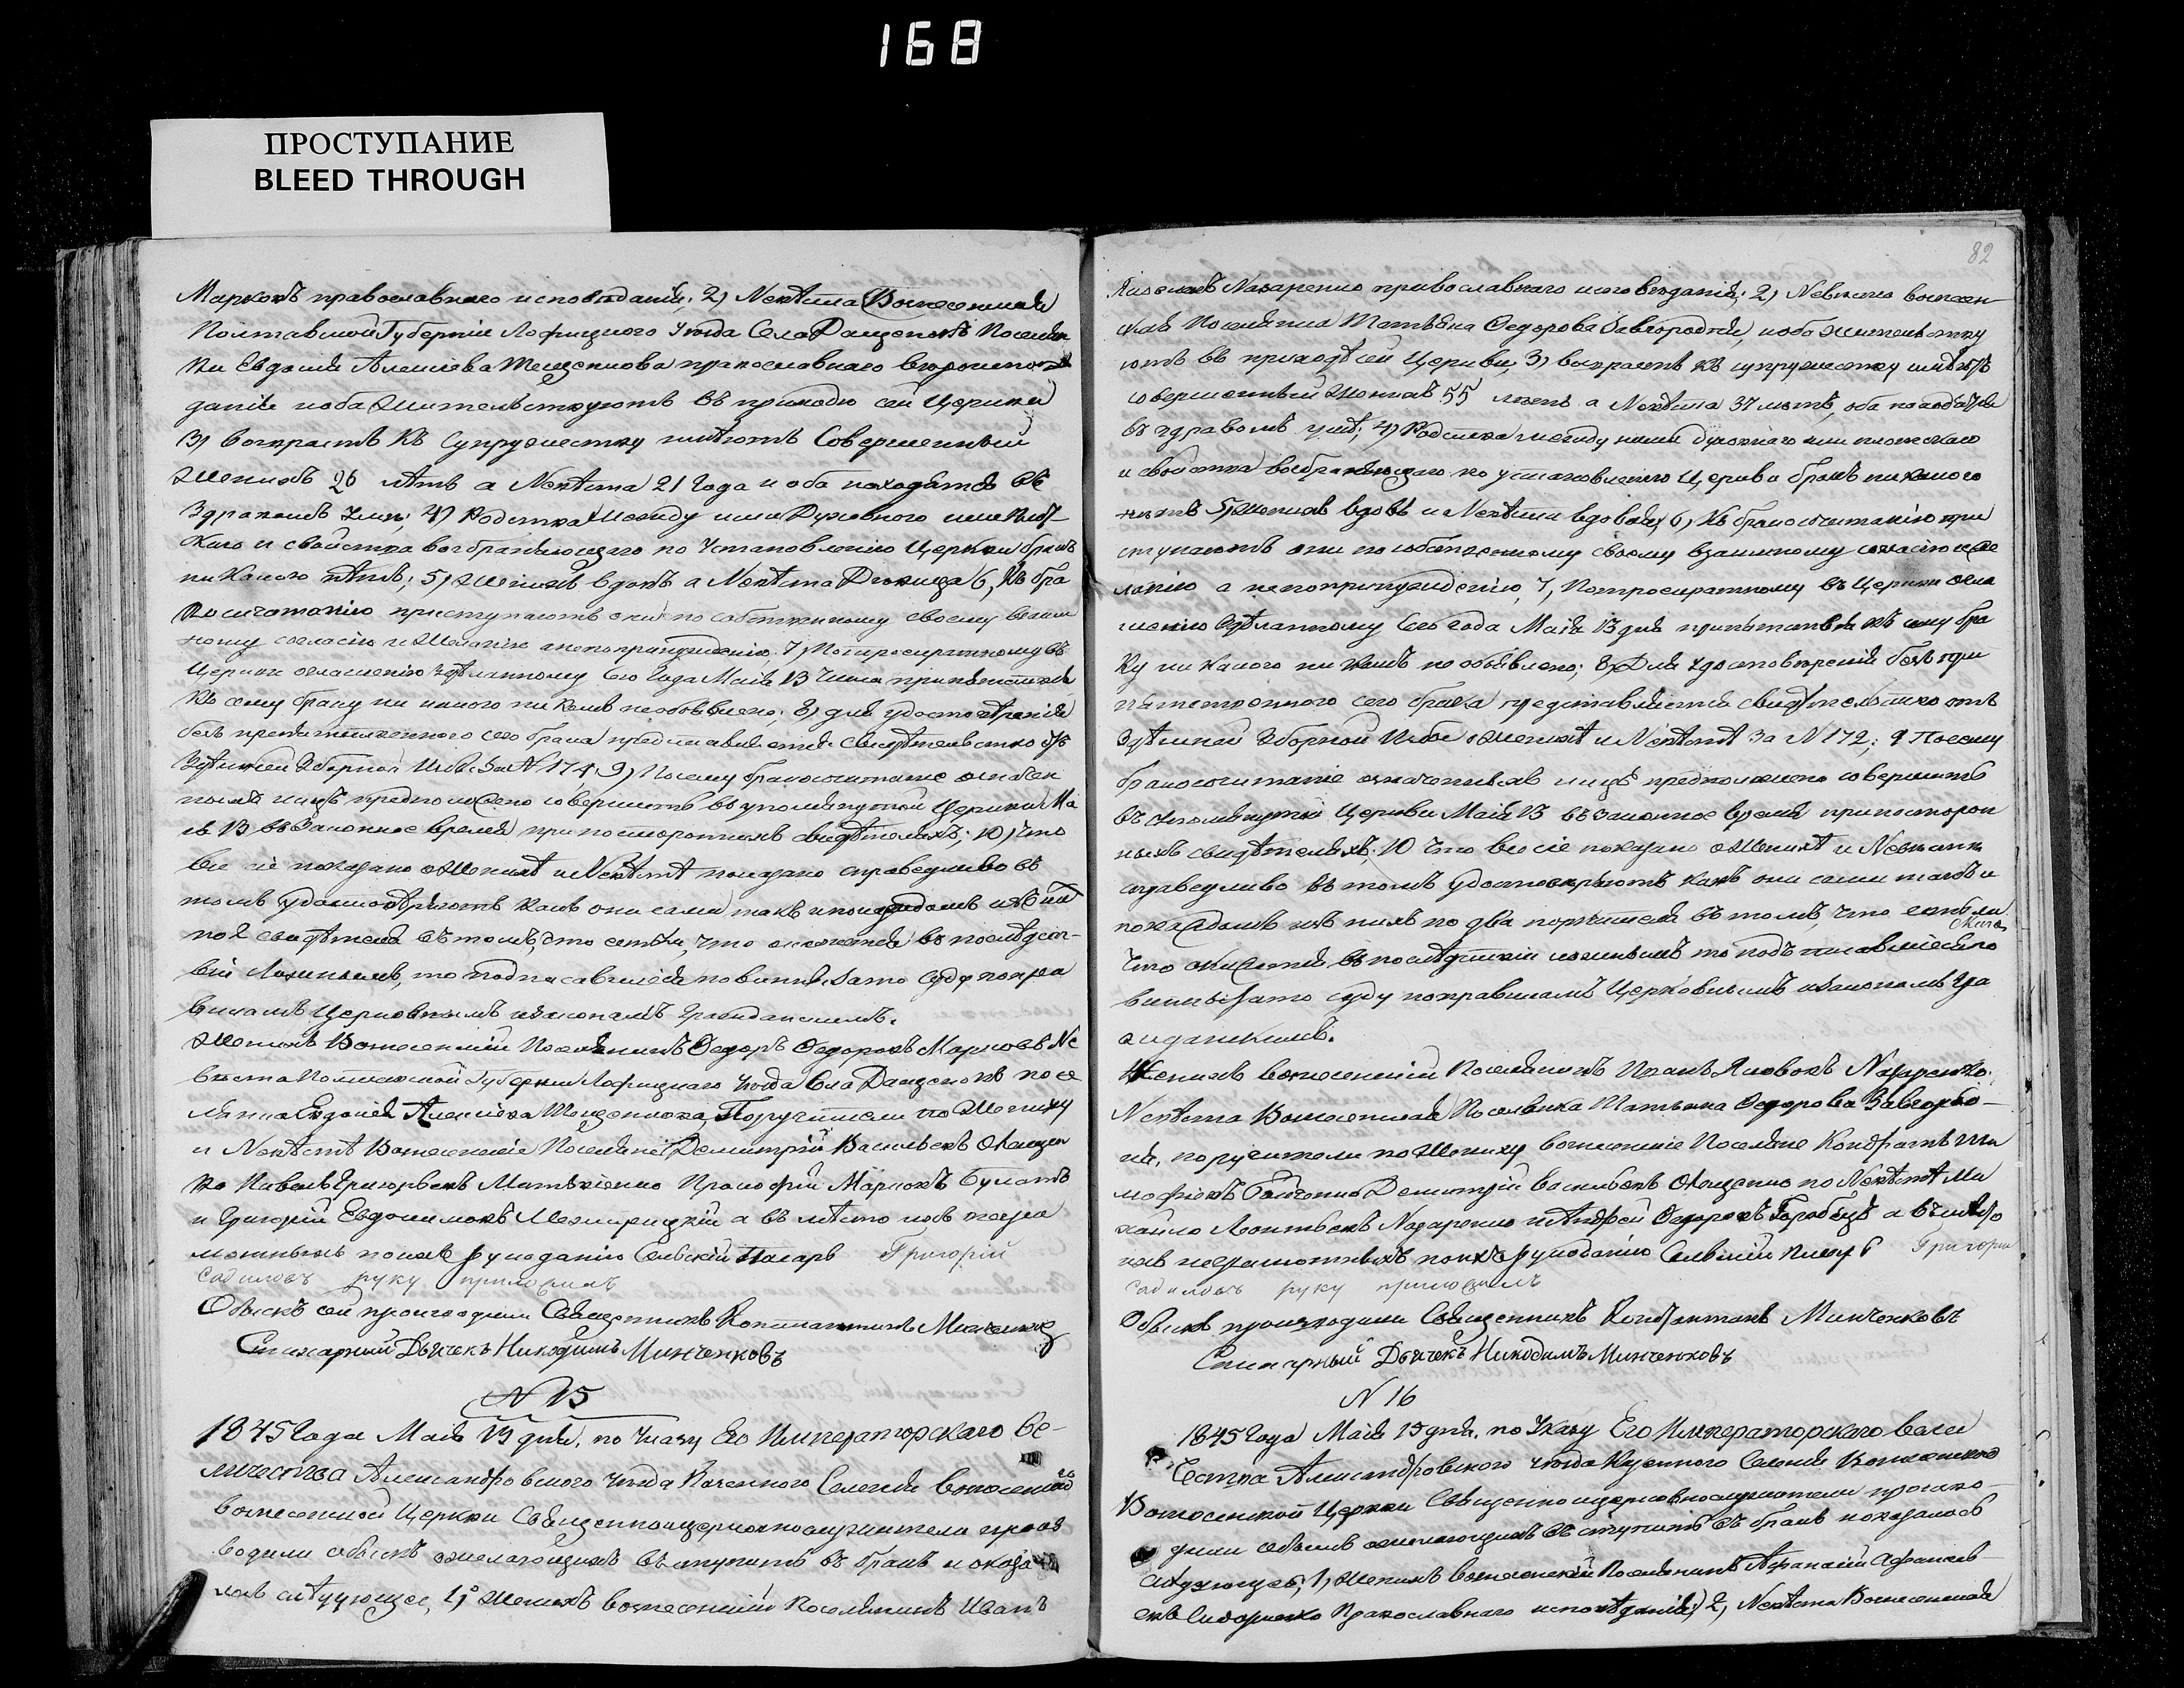 168
ПРОСТУПАНИЕ
BLEED THROUGH
Марковъ православнаго исповѣданія; 2) Невѣста Вознесенская
Полтавской Губерніи Лохвицкого Уѣзда Села Поселян
ки Евдокія Алексіева православнаго вѣроиспо
данія и оба жительствуютъ въ приходѣ сей Церкви
3) возрастъ къ супружеству имѣютъ Совершенный
женихъ 26 лѣтъ а Невѣста 21 года и оба находятся въ
здравомъ умѣ; 4) Родства между ими Духовного или Плот-
ского и свойства возбраняющаго по Установленію Церкви бракъ
никакого нѣтъ; 5) Женихъ вдовъ а Невѣста Дѣвица 6, Къ бра
косочетанію приступаютъ они по собственному своему взаим
ному согласію и желанію а непопринужденію. 7) Потроекратному въ
Церкви оглашенію здѣланному сего Года Маія 13 числа препятствія
къ сему браку ни какого никемъ необъявлено; 8) для удостовѣренія
безъ препятственного сего брака представляется свидѣтельство отъ
Здѣшней Зборной Избы За N 171; 9) Посему бракосочетаніе означен
ныхъ лицъ предположено совершить въ упомянутой Церкви Ма
ія 13 въ Законное время при постороннихъ свидѣтеляхъ; 10) что
все сіе показано о Женихѣ и Невѣстѣ показано справедливо въ
томъ удостовѣряютъ какъ они сами такъ и по каждомъ изъ них
по 2 свидѣтеля въ томъ, что естьли, что окажется въ послѣдст-
віи Ложнымъ, то подписавшіеся повинны зато суду по пра
виламъ Церковнымъ и законамъ Гражданскимъ.
Женихъ Вознесенскій Поселянинъ Федоръ Федоровъ Марковъ Не
вѣста Полтавской Губерніи Лохвицкаго Уѣзда Села посе
лянка Евдокія Алексіева Поручители по Жениху
и Невѣстѣ Вознесенскіе Поселяне Демитрій Васильевъ Онищен
ко Павелъ Григорьевъ Матвіенко Прокофій Марковъ
и Григорій Евдокимовъ Межирицкій а въ мѣсто ихъ негра
мотныхъ по ихъ рукоданію Сельскій Писарь Григорій
Садиловъ руку приложилъ
Обыскъ сей производили Священникъ Константинъ Минченковъ
Стихарный Дьячекъ Никодимъ Минченковъ
N 15
1845 Года Маія 13 дня. по Указу Его Императорскаго Ве-
личества Александровского Уѣзда Казенного Селенія Вознесенского
Вознесенской Церкви Священноицерковнослужители произ
водили обыскъ о желающихъ вступить въ бракъ и оказа
лось слѣдующее, 1) Женихъ вознесенскій Поселянинъ Иванъ
82
Яковлевъ Назаренко православнаго исповѣданія; 2) Невѣста вознесен-
ская Поселянка Татьяна Федорова Завгородняя, и оба жительству
ютъ въ приходѣ сей Церкви, 3) возрастъ къ супружеству имѣютъ
совершенный Женихъ 55 лѣтъ а Невѣста 37 лѣтъ, оба находятся
въ здравомъ умѣ; 4) Родства между ними духовнаго или плотскаго
и свойства возбраняющаго по установленію Церкви бракъ никакого
нѣтъ 5) Женихъ вдовъ и Невѣста вдовая, 6) Къ бракосочетанію при
ступаютъ они по собственному своему взаимному согласію и же
ланію а непопринужденію, 7, Потроекратному въ Церкви огла
шенію здѣланному сего года Маія 13 дня препятствія къ сему бра
ку ни какого ни кемъ не объявлено; 8) Для удостовѣренія безъ пре
пятственного сего брака представляется свидѣтельство отъ
Здѣшней Зборной Избы о женихѣ и Невѣстѣ За N 172; 9 Посему
бракосочетаніе означенныхъ лицъ предположено совершить
въ упомянутой Церкви Маія 13 въ законное время при посторон
ныхъ свидѣтеляхъ; 10 Что все сіе показано о Женихѣ и Невѣстѣ
справедливо въ томъ удостовѣряютъ какъ они сами такъ и
по каждомъ изъ нихъ по два поручителя въ томъ, что естьли
что окажется въ послѣдствіи ложнымъ то подъписавшіеся по
винны зато суду по правиламъ Церковнымъ и законамъ Гра
жданскимъ.
Женихъ вознесенскій Поселянинъ Иванъ Яковлевъ Назаренко.
Невѣста Вознесенская Поселянка Татьяна Федорова Завгород-
ня, поручители по Жениху вознесенскіе Поселяне Кондратъ Ти
мофіевъ Демитрій Васильевъ Онищенко по Невѣстѣ Ми
хайло Леонтьевъ Назаренко и Андрей Федоровъ Горобецъ а въ мѣсто
ихъ неграмотныхъ по ихъ рукоданію Сельскій Писарь Григорій
Садиловъ руку приложилъ
Обыскъ производили Священникъ Константинъ Минченковъ
Стихарный Дьячекъ Никодимъ Минченковъ
N 16
1845 Года Маія 13 дня. по Указу Его Императорскаго Вели
чества Александровского Уѣзда Казенного Селенія Вознесенского
Вознесенской Церкви Священноицерковнослужители произво-
дили обыскъ о желающихъ вступить въ бракъ и оказалось
слѣдующее; 1, Женихъ вознесенскій Поселянинъ Афанасій Афанасьевъ
Сидоренко Православнаго исповѣданія; 2, Невѣста Вознесенская